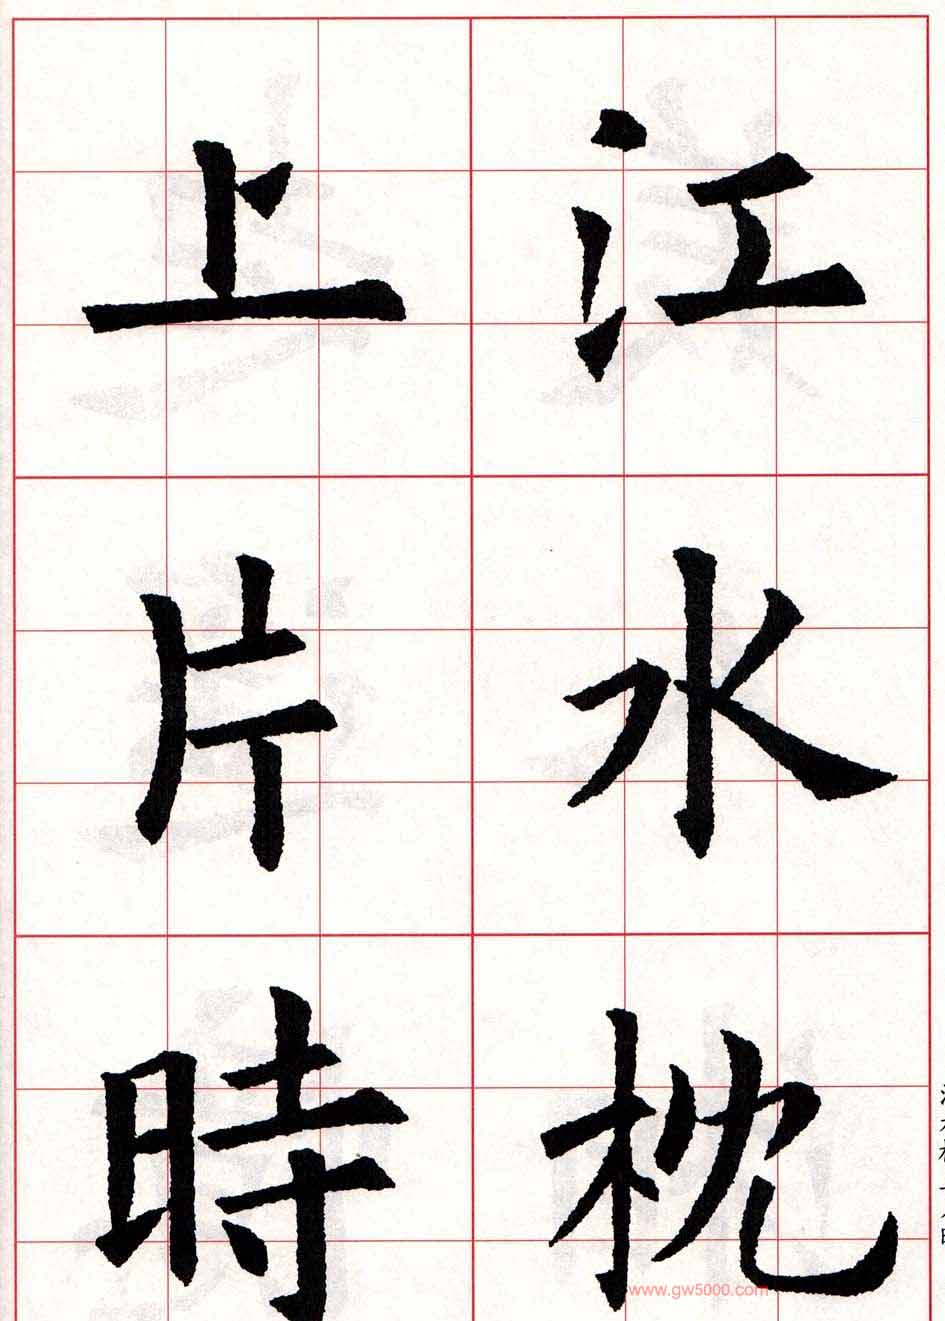 江水枕
上片時
www.gw5000.com